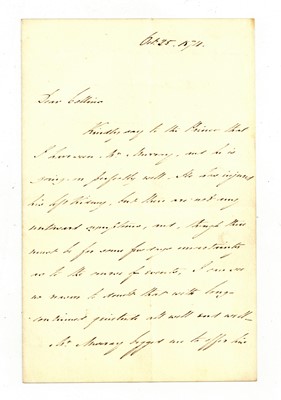 Oct 25. 1871.
Dear Collins
Kindly say to the Prince that
I have seen Mr Murray, and he is
going on perfectly well. He has injured
his left kidney, but there are not any
untoward symptoms, and, though there
must be for some days uncertainty
as to the course of events, I can see
no reason to doubt that with long-
continued quietude all will end well—
Mr. Murray begged me to offer his